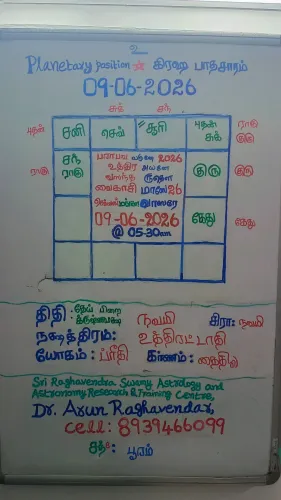 உ
Planetary position ☆ கிரஹ பாதசாரம்
09-06-2026
சுக் சந்
புதன் சனி செவ் சூரி புதன் சுக் ராகு குரு
ராகு சந் ராகு குரு குரு
2026
உத்தர அயன
வஸந்த ருதௌ
வைகாசி மாஸ 26
09-06-2026
@ 05-30am
கேது கேது
திதி: தேய் பிறை நவமி கிரா: நவமி
க்ருஷ்ணபக்ஷ
நக்ஷத்திரம்: உத்திரட்டாதி
யோகம்: ப்ரீதி கர்ணம்: தைதில
Sri Raghavendra Swamy Astrology and
Astronomy Research & Training Centre,
Dr. Arun Raghavendar,
Cell: 8939466099
சந்: பூரம்